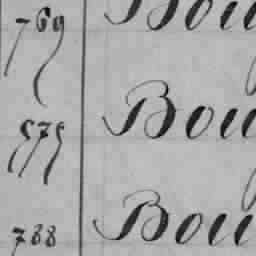 769 Bou
575 Bou
788 Bou